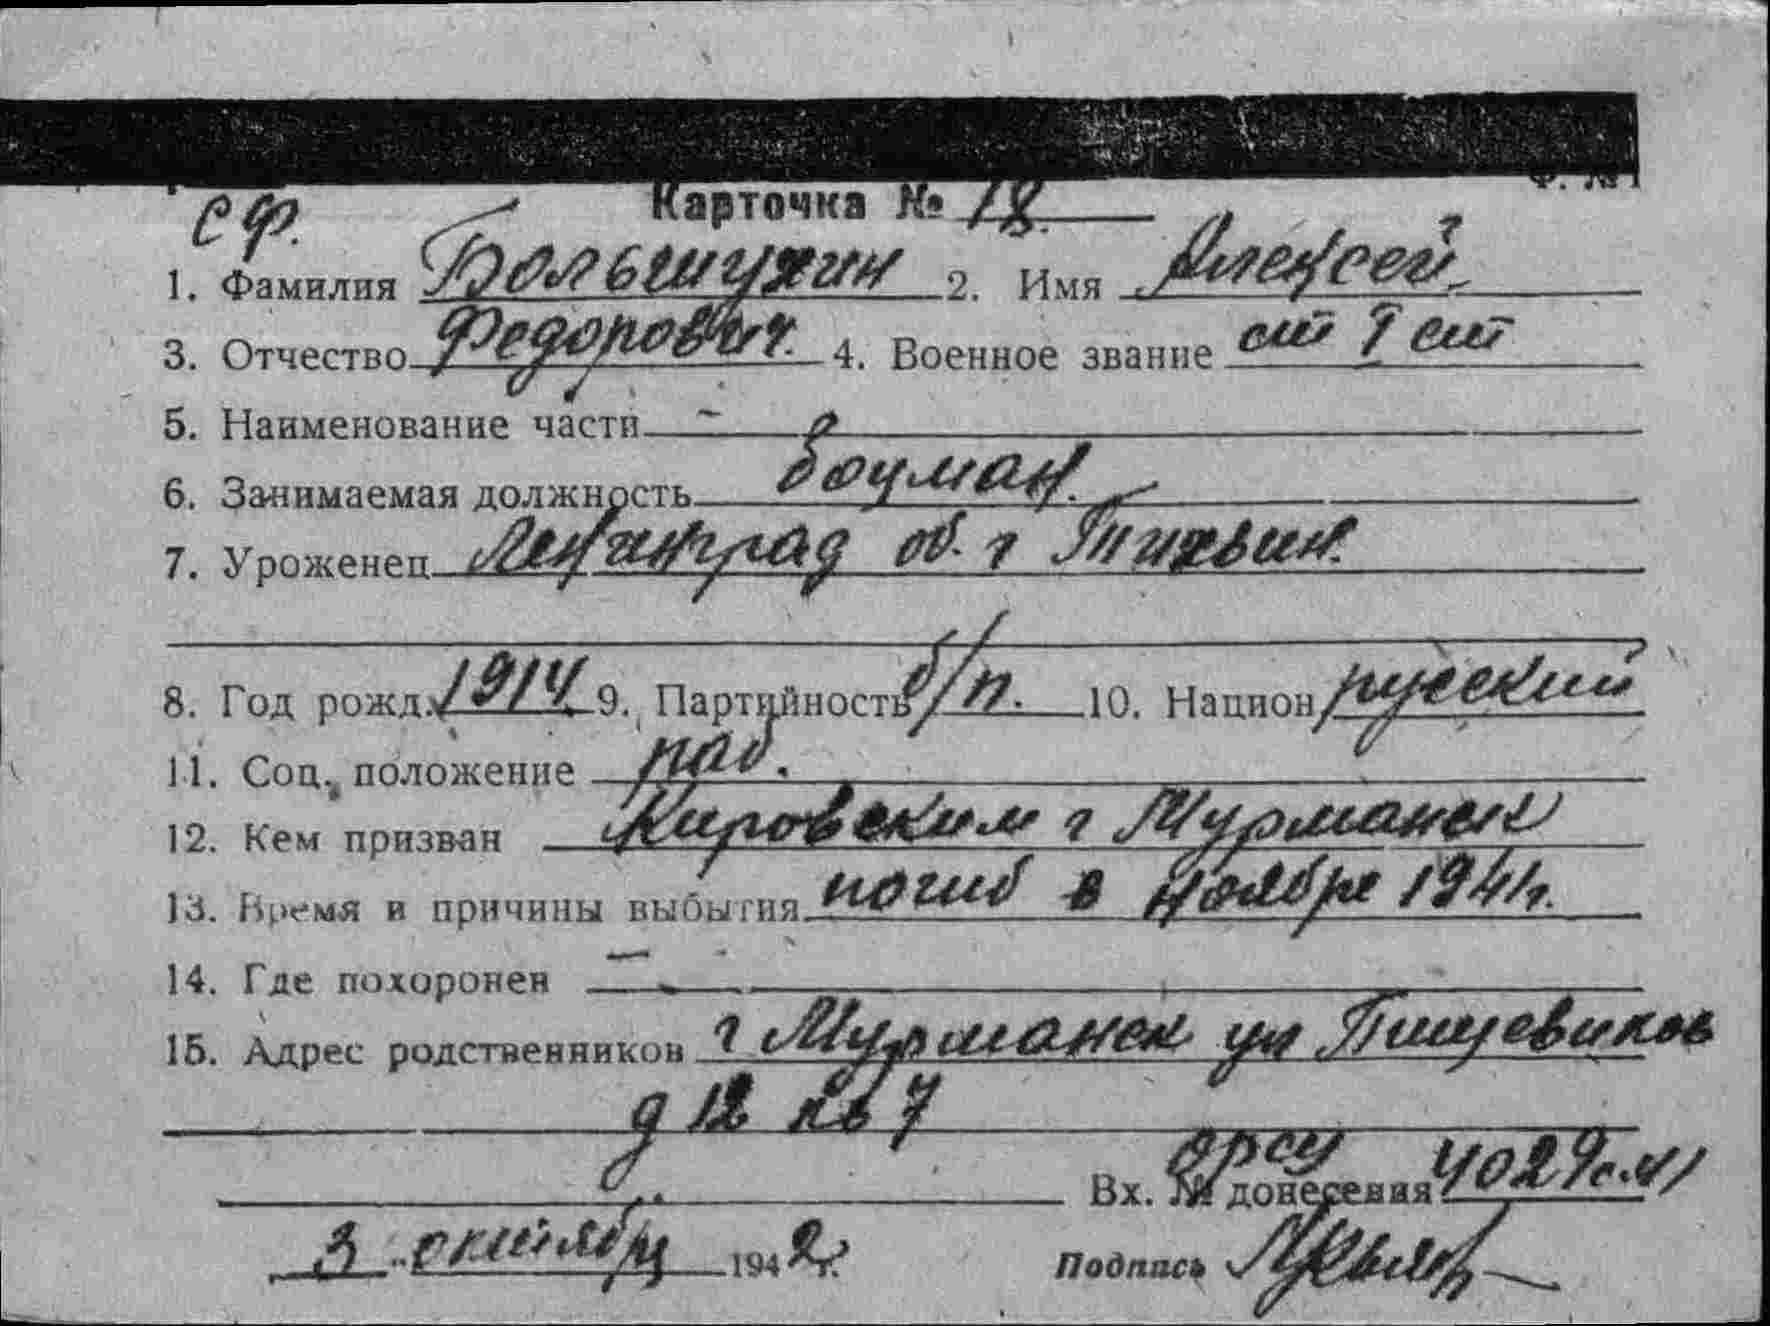 Ф. № 1
Карточка № 18.
СФ.
1. Фамилия Большухин 2. Имя Алексей
3. Отчество Федорович. 4. Военное звание ст I ст
5. Наименование части –
6. Занимаемая должность боцман.
7. Уроженец Ленинград об. г Тихвин.
8. Год рожд. 1914 9. Партийность б/п. 10. Национ русский
11. Соц. положение раб.
12. Кем призван Кировским г Мурманск
13. Время и причины выбытия погиб в ноябре 1941г.
14. Где похоронен –
15. Адрес родственников г Мурманск ул Пищевиков
д 12 кв 7
орсу
Вх. № донесения 4029с.41
3 октября 1942г.
Подпись